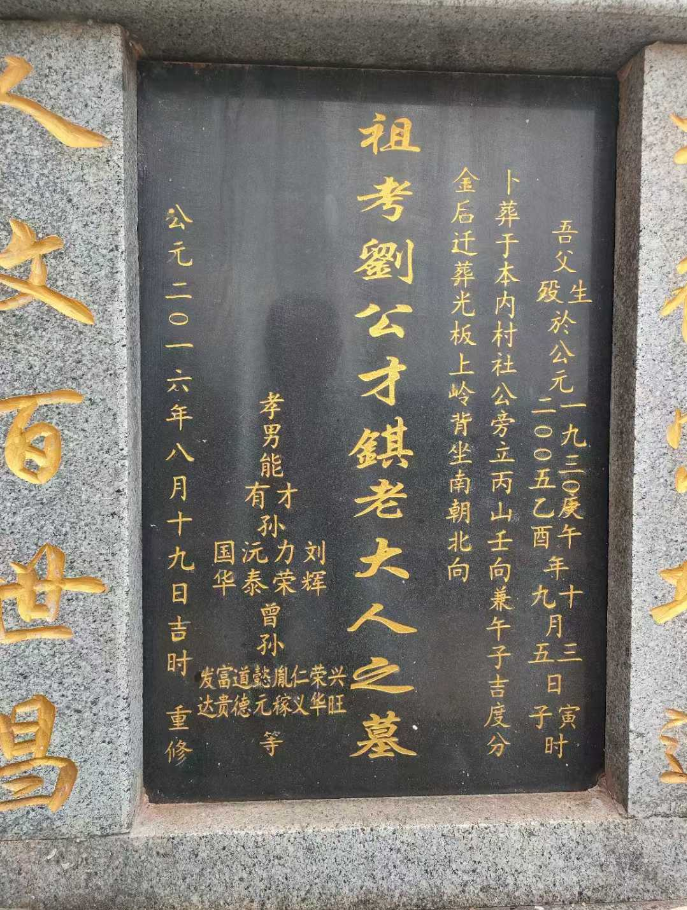 吾父生殁於公元一九三〇庚午二〇〇五乙酉年十九月三五日寅子时
卜葬于本内村社公旁立丙山壬向兼午子吉度分
金后迁葬光板上岭背坐南朝北向
祖考劉公才錤老大人之墓
孝男能
才有
孙
刘辉
力荣
沅泰
国华
曾孙
兴旺
荣华
仁义
胤稼
懿元
道德
富贵
发达
等
公元二〇一六年八月十九日吉时 重修
人文百世昌